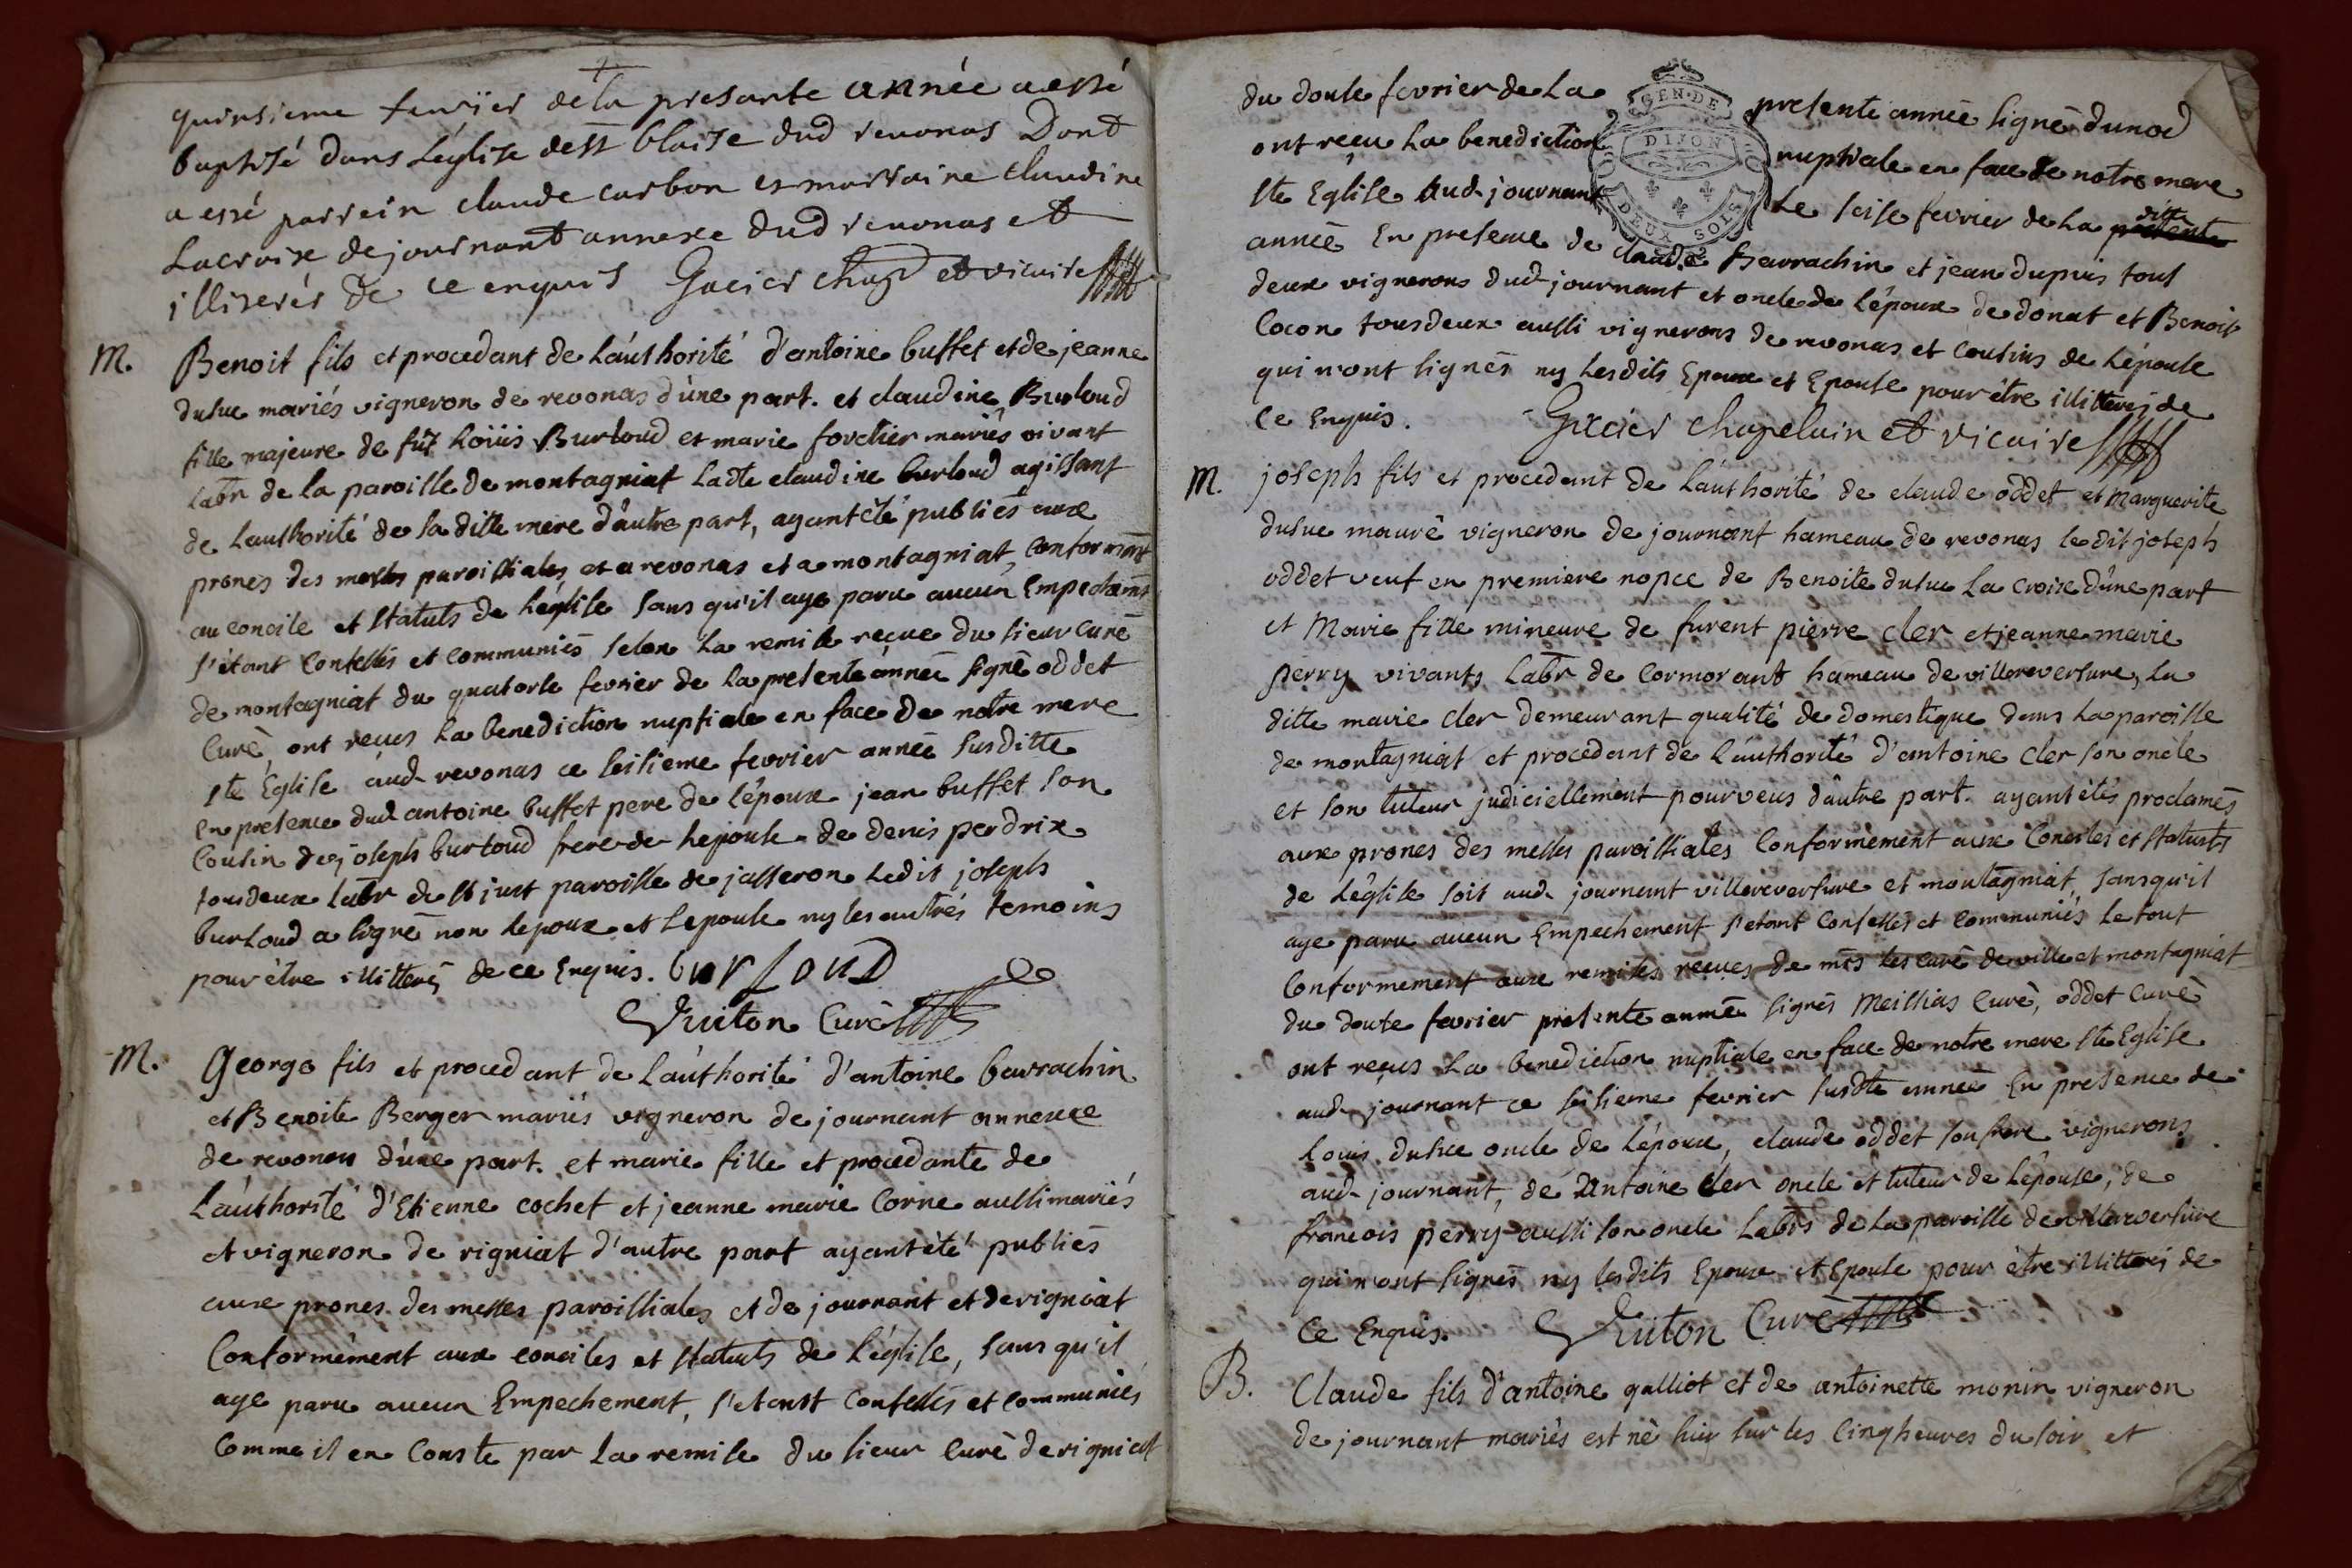 quinsieme fevrier de la presante année a essé
baptisé dans L'église de st blaise dud revonas Dont
a essé parrein claude carbon et marraine claudine
Lacroix de journant annexe dud revonas et
illiserés de ce enquis Gacier chap et vicaire
M. Benoit fils et procedant de L'authorité d'antoine buffet et de jeanne
dusuc mariés vigneron de revonas d'une part. et claudine Burloud
fille majeure de fût Loüis Burloud et marie fortier mariés vivant
labr de la paroisse de montagniat Ladte claudine burloud agissant
de L'authorité de sa ditte mere d'autre part, ayant été publiés aux
prones des messes paroissiales et a revonas et a montagniat, conformmt
au concile et statuts de L'église sans qu'il aye paru aucun Empechemt
s'étant confessés et communiés selon La remise reçue du sieur curé
de montagniat du quatorse fevrier de La presente année signé oddet
Curé, ont reçus La benediction nuptiale en face de notre mere
Ste Eglise aud revonas ce seisieme fevrier année susditte
En presence dud antoine buffet pere de L'époux jean buffet son
Cousin de joseph burloud frere de Lepouse de denis perdrix
tousdeux labr de st just paroisse de jasseron Ledit joseph
burloud a signé non Lepoux et Lepouse ny les autrés temoins
pour être illitterés de ce Enquis. burLouD
Vuiton Curé
M. George fils et procedant de L'authorité d'antoine bavrachin
et Benoite Berger mariés vigneron de journant annexe
de revonas d'une part. et marie fille et procedante de
L'authorité d'Etienne cochet et jeanne marie Corne aussi mariés
et vigneron de rigniat d'autre part ayant été publiés
aux prones des messes paroissiales et de journant et de rigniat
Conformément aux conciles et statuts de L'église, sans qu'il
aye paru aucun Empechement, s'etant Confessés et communiés
Comme il en Conste par La remise du sieur Curé de rigniat
du douse fevrier de La presente année signé dunod
ont reçu La benediction nuptiale en face de notre mere
Ste Eglise aud journant Le seise fevrier de La presente ditte
année En presence de claude Bavrachin et jean dupuis tous
deux vignerons dud journant et oncle de L'époux de donat et Benoit
Cocon tousdeux aussi vignerons de revonas et cousins de L'épouse
qui n'ont signés ny Lesdits Epoux et Epouse pour être illitterés de
Ce Enquis. Gacier chapelain et vicaire
GEN. DE
DIJON
DEUX SOLS
M. joseph fils et procedant de L'authorité de claude oddet et Marguerite
dusuc marié vigneron de journant hameau de revonas Ledit joseph
oddet veuf en premiere nopce de Benoite dusuc La Croix d'une part
et Marie fille mineure de furent pierre cler et jeanne marie
perry vivants Labr de Cormorant hameau de villereversure, La
ditte marie cler demeurant qualité de domestique dans La paroisse
de montagniat et procedant de L'authorité d'antoine cler son oncle
et son tuteur judiciellement pourveus d'autre part. ayant étés proclamés
aux prones des messes paroissiales Conformement aux Conciles et statuts
de L'église soit aud journant villereversure et montagniat, sans qu'il
aye paru aucun Empechement s'etant Confessés et communiés Le tout
Conformement aux remises reçues de mrs les curé de ville et montagniat
du douse fevrier presente année signés Meillias Curé, oddet curé
ont reçus La benediction nuptiale en face de notre mere Ste Eglise
aud journant ce seisieme fevrier susdte année En presence de
Louis dusuc oncle de L'époux, claude oddet son frere vignerons
aud journant, de Antoine cler oncle et tuteur de L'épouse, de
francois perry aussi son oncle Labrs de La paroisse de villereversure
qui n'ont signés ny Lesdits Epoux et Epouse pour être illitterés de
Ce Enquis. Vuiton Curé
B. Claude fils d'antoine galliot et de antoinette monin vigneron
de journant mariés est né hier sur les Cinq heures du soir et